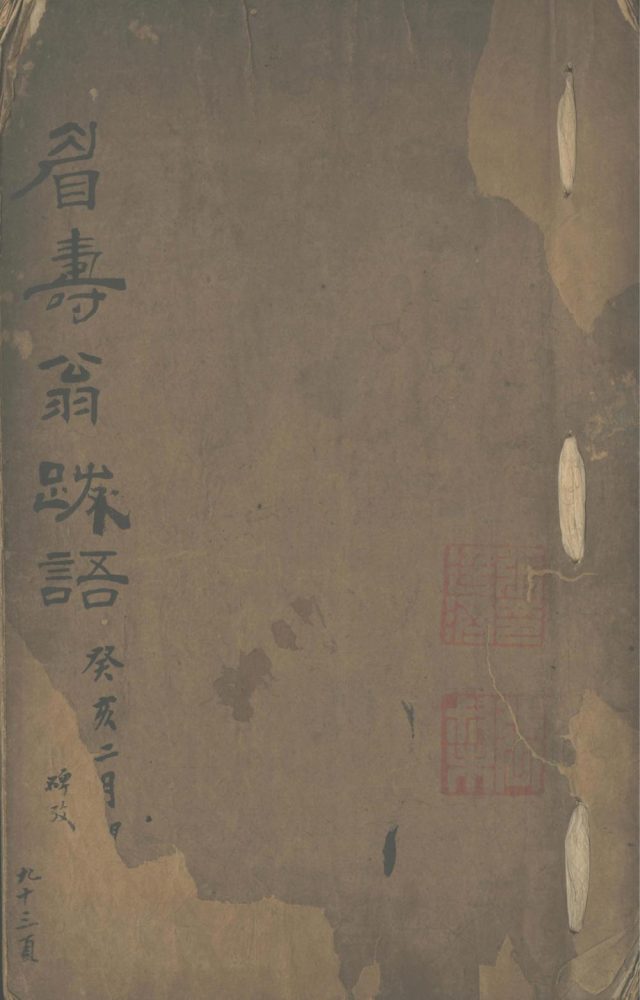 眉壽翁䟽語
癸亥二月日
碑攷
九十三頁